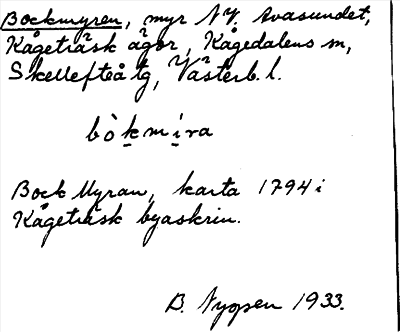 Bockmyren, myr NV. Avasundet,
Kågeträsk ägor, Kågedalens m,
Skellefteå tg, Västerb. l.
bòkmíra
Bock Myran, karta 1794 i
Kågeträsk byaskrin.
B. Nygren 1933.